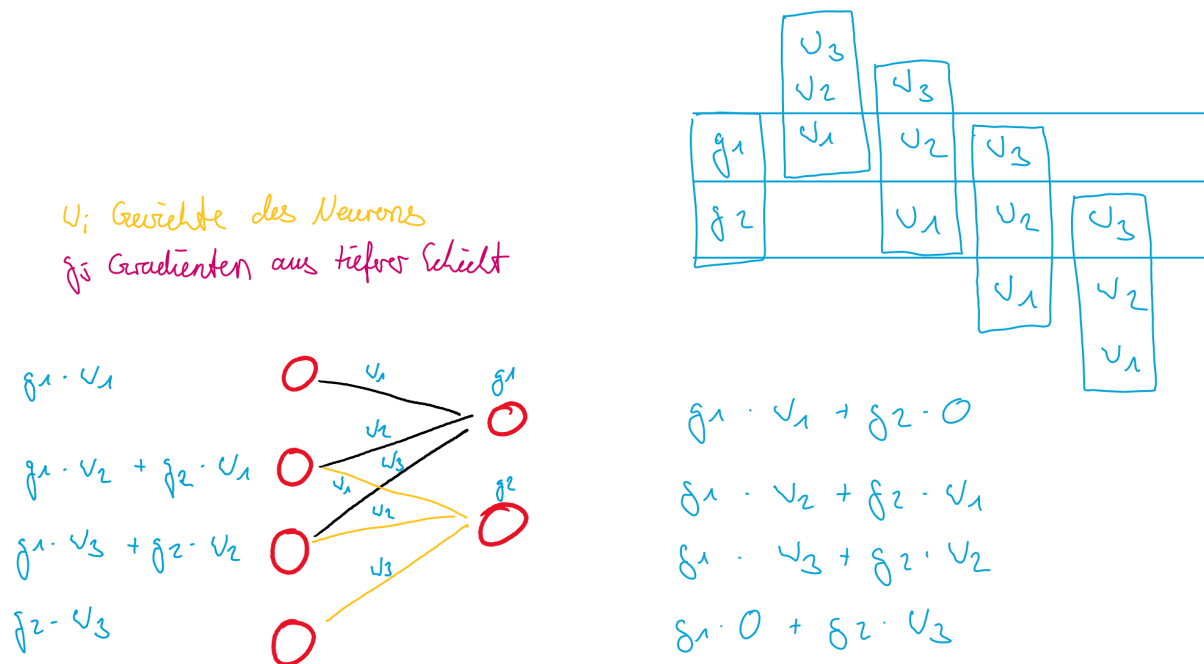 w_i Gewichte des Neurons
g_j Gradienten aus tieferer Schicht
g1 · w1
g1 · w2 + g2 · w1
g1 · w3 + g2 · w2
g2 · w3
w1
g1
w2
w3
w1
g2
w2
w3
w3
w2 w3
g1 w1 w2 w3
g2 w1 w2 w3
w1 w2
w1
g1 · w1 + g2 · 0
g1 · w2 + g2 · w1
g1 · w3 + g2 · w2
g1 · 0 + g2 · w3